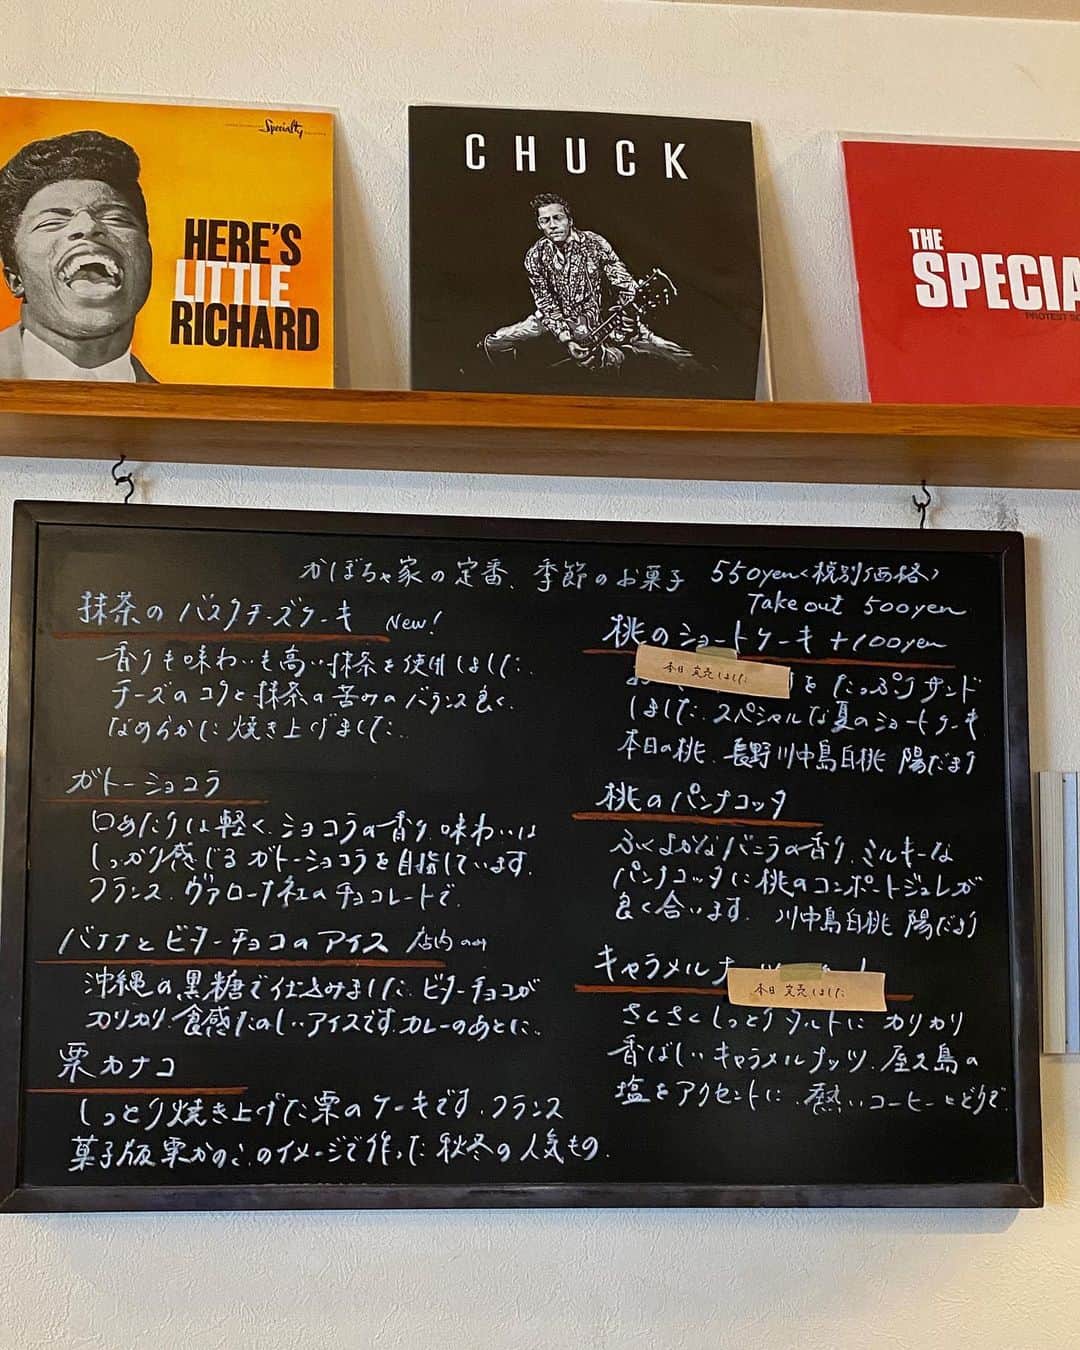 Specialty
HERE'S
LITTLE
RICHARD
CHUCK
THE
SPECIA
PROTEST SO
かぼちゃ家の定番、季節のお菓子 550yen<税別価格>
Take out 500yen
抹茶のバスクチーズケーキ New!
香りも味わいも高い抹茶を使用しました。
チーズのコクと抹茶の苦みのバランス良く、
なめらかに焼き上げました。
ガトーショコラ
口あたりは軽く、ショコラの香り、味わいは
しっかり感じるガトーショコラを目指しています。
フランス、ヴァローナ社のチョコレートで。
バナナとビターチョコのアイス 店内のみ
沖縄の黒糖で仕込みました。ビターチョコが
カリカリ、食感たのしいアイスです。カレーのあとに。
栗カナコ
しっとり焼き上げた栗のケーキです。フランス
菓子版栗かのこのイメージで作った秋冬の人気もの。
桃のショートケーキ +100yen
本日 完売しました
をたっぷりサンド
しました。スペシャルな夏のショートケーキ
本日の桃、長野川中島白桃 陽だまり
桃のパンナコッタ
ふくよかなバニラの香り、ミルキーな
パンナコッタに桃のコンポートジュレが
良く合います。 川中島白桃 陽だまり
キャラメルナッツ
本日 完売しました
さくさくしっとりタルトに カリカリ
香ばしいキャラメルナッツ、屋久島の
塩をアクセントに、熱いコーヒーとどうぞ。